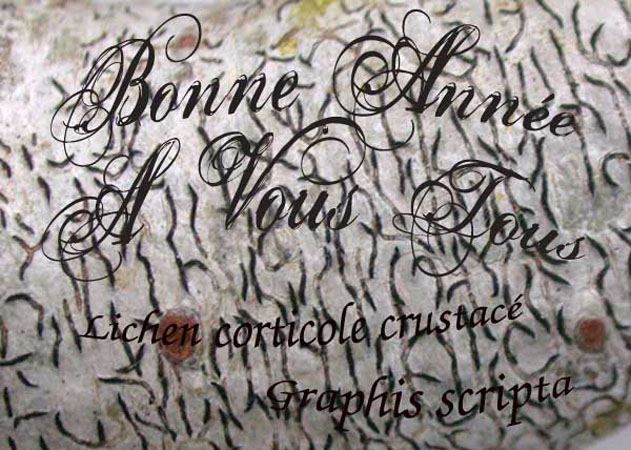 Bonne Année
A Vous Tous
Lichen corticole crustacé
Graphis scripta